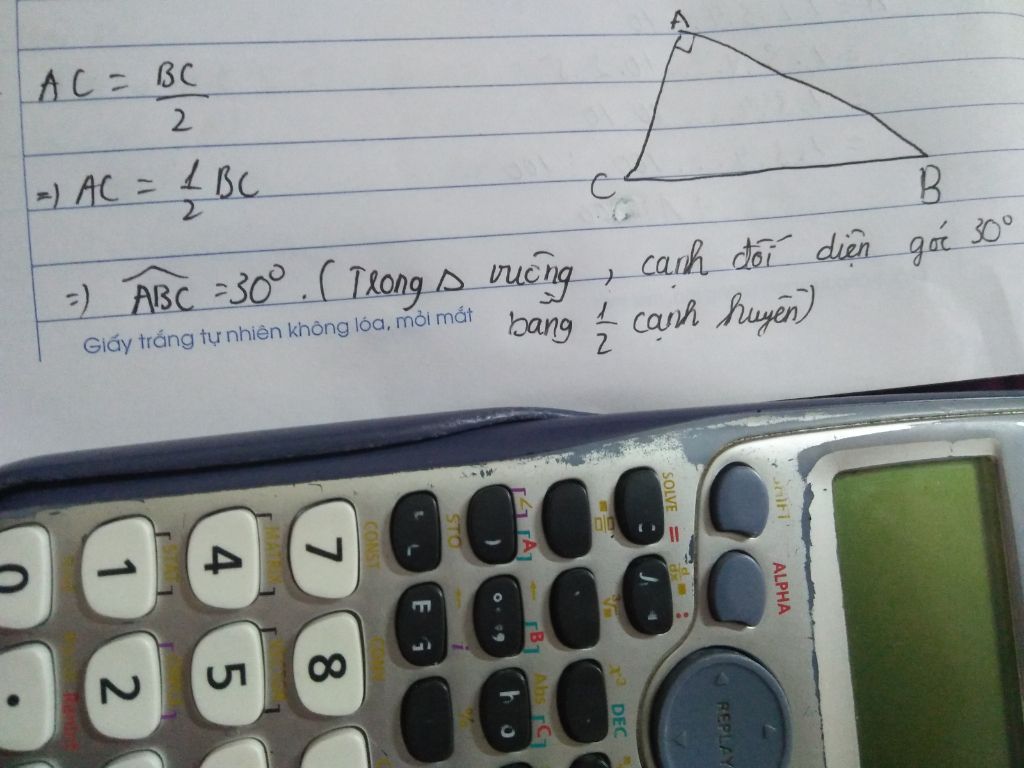 A
AC = BC/2
=) AC = 1/2 BC
C
B
=) ABC = 30° . ( Trong Δ vuông , cạnh đối diện góc 30°
bằng 1/2 cạnh huyền)
Giấy trắng tự nhiên không lóa, mỏi mắt
SHIFT
ALPHA
SOLVE =
d/dx
:
x³ DEC
REPLAY
STO
CONST
CONV
[A]
[B]
Abs [C]
←
i
%
7
8
4
5
1
2
0
.